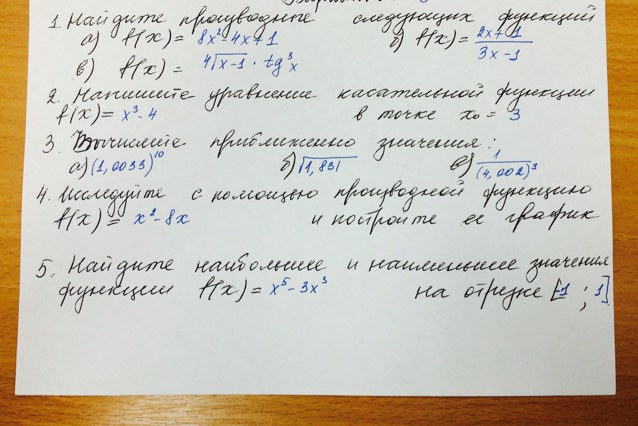 1. Найдите производные следующих функций
а) f(x) = 8x² - 4x + 1 б) f(x) = (2x + 1)/(3x - 1)
в) f(x) = 4√(x-1) · tg³x
2. Напишите уравнение касательной функции
f(x) = x³ - 4 в точке x₀ = 3
3. Вычислите приближенно значения:
а) (1,0033)¹⁰ б) √1,831 в) 1/(4,002)³
4. Исследуйте с помощью производной функцию
f(x) = x² - 8x и постройте ее график
5. Найдите наибольшее и наименьшее значения
функции f(x) = x⁵ - 3x³ на отрезке [-1 ; 1]